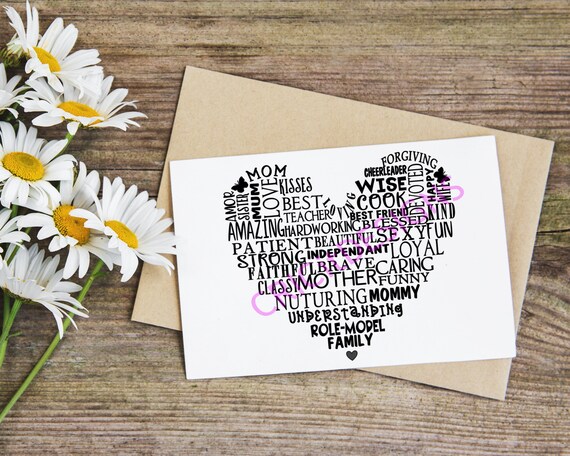 MOM
FORGIVING
AMOR SISTER MUM LOVE KISSES CHEERLEADER WISE DEVOTED HAPPY WIFE
BEST COOK
TEACHER LOVING BEST FRIEND KIND
AMAZING HARDWORKING BLESSED
PATIENT BEAUTIFUL SEXY FUN
STRONG INDEPENDANT LOYAL
FAITHFUL BRAVE CARING
CLASSY MOTHER FUNNY
NUTURING MOMMY
UNDERSTANDING
ROLE-MODEL
FAMILY